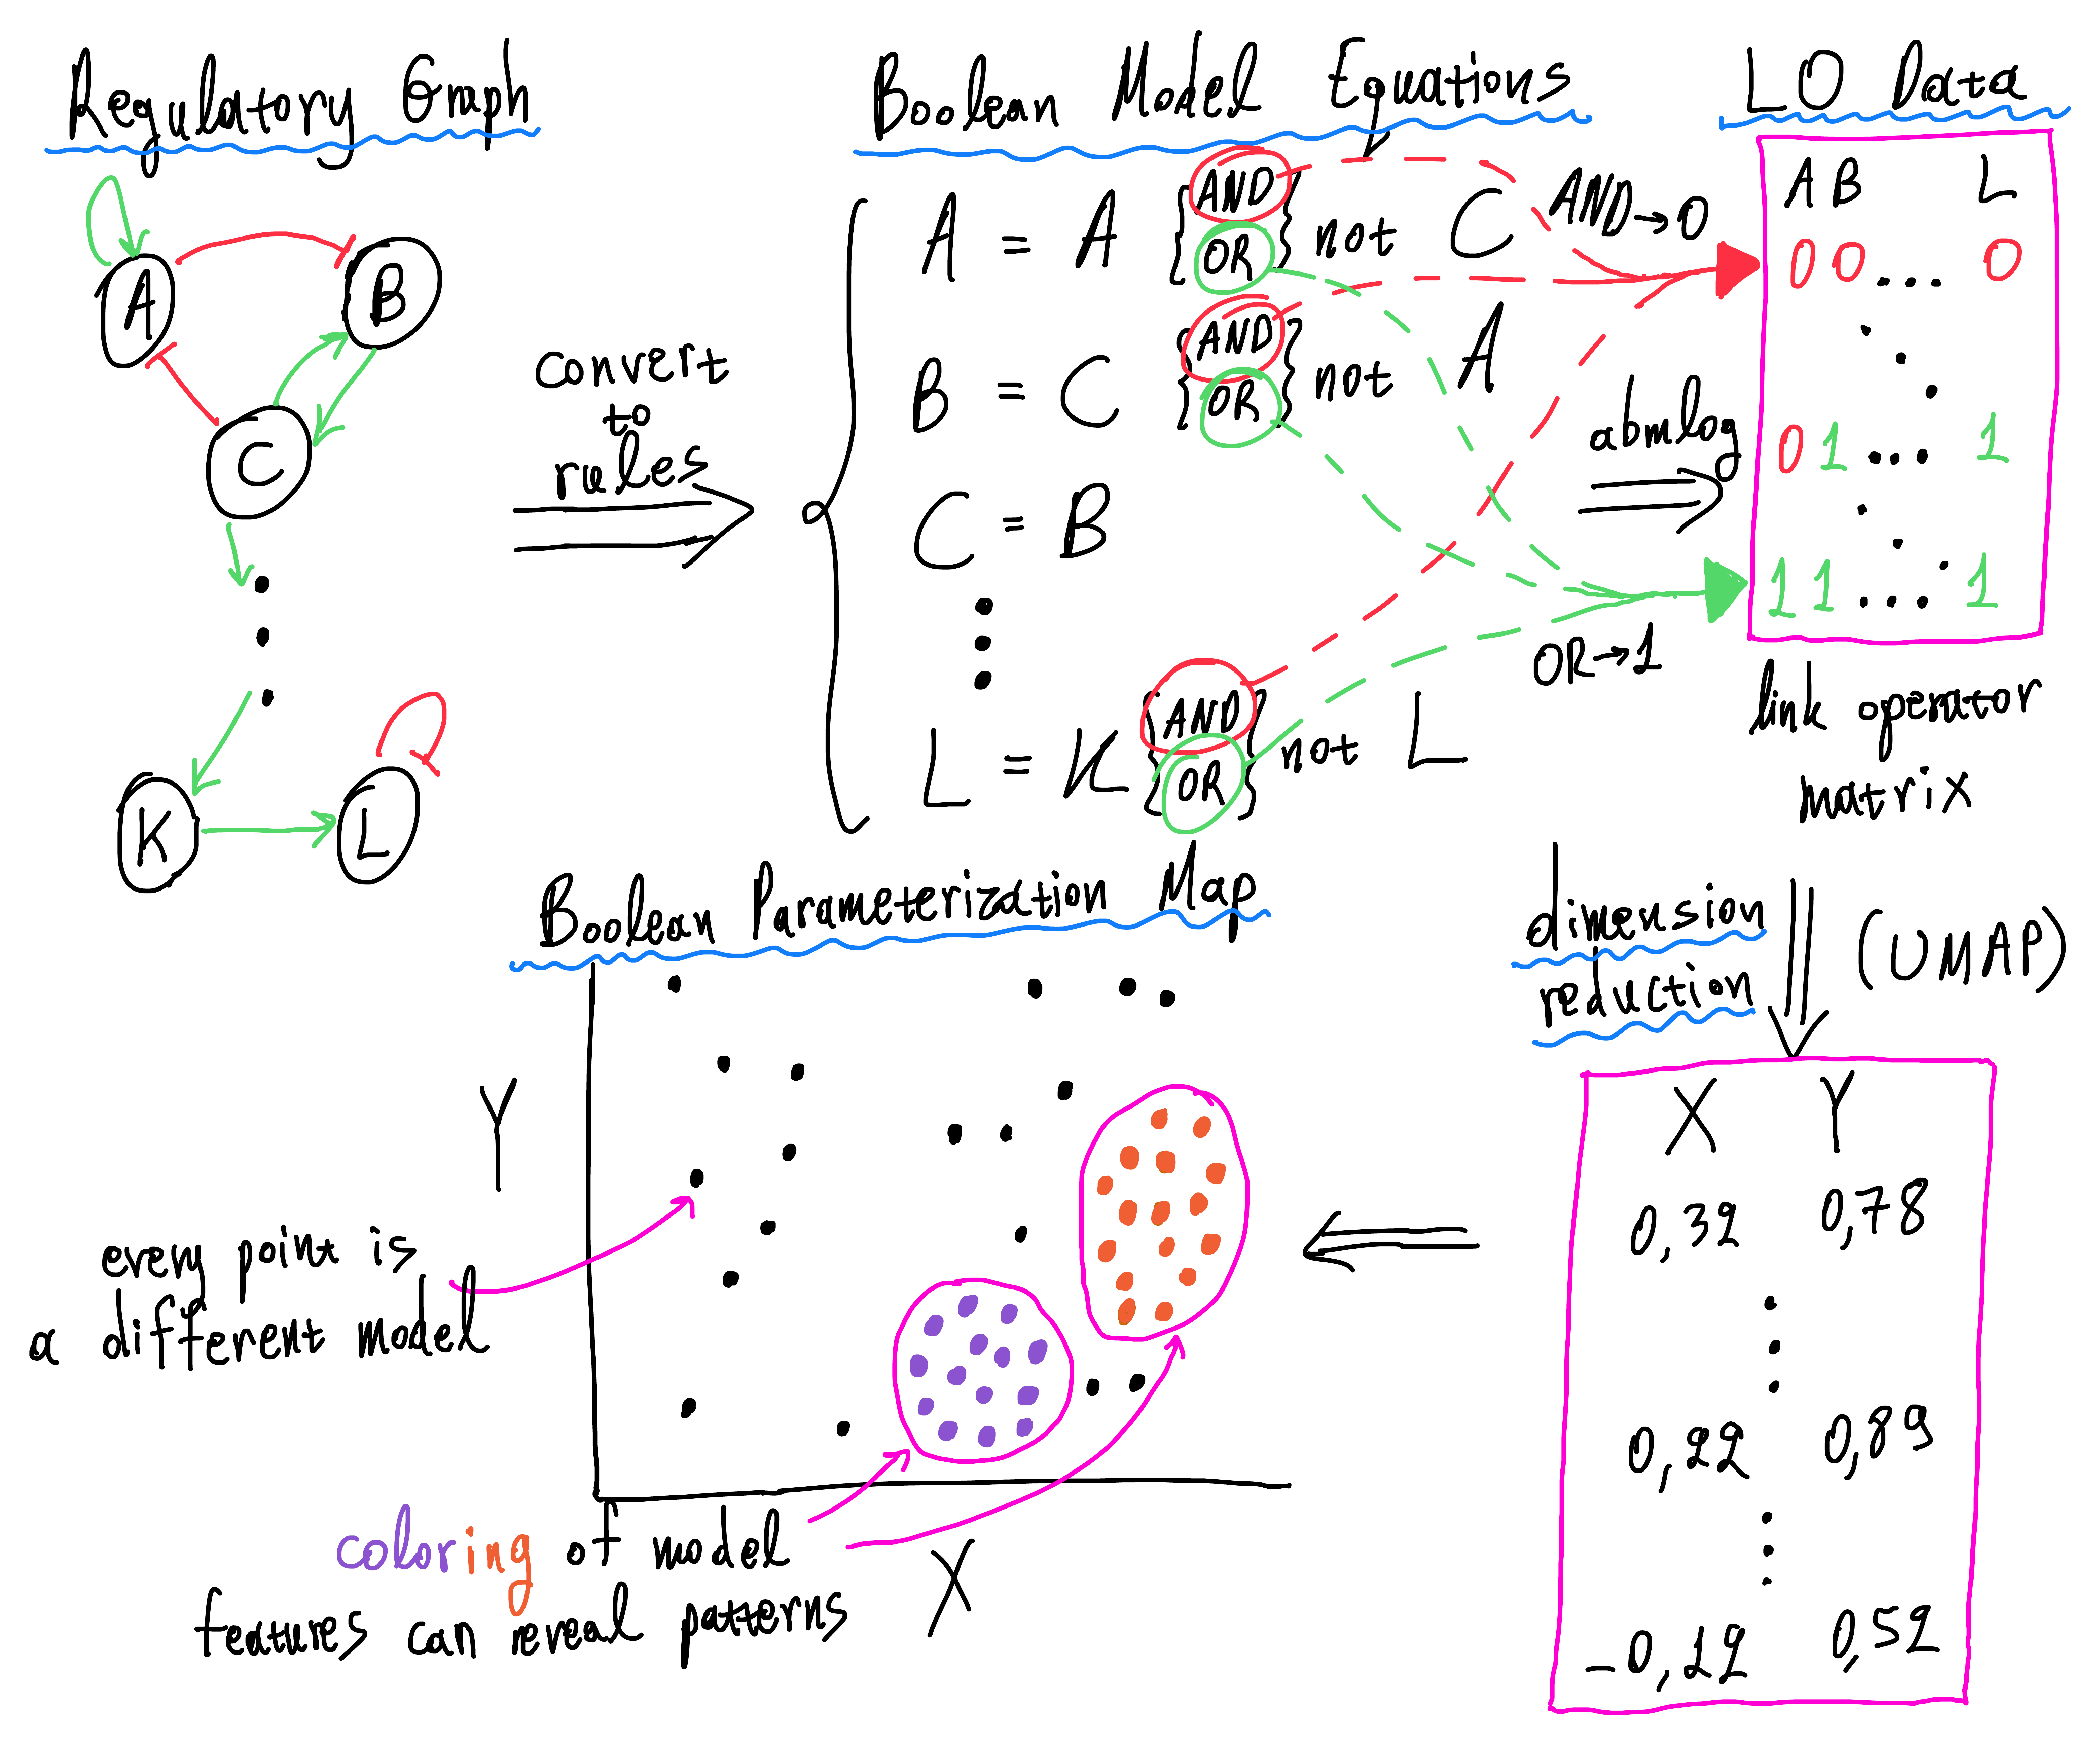 Regulatory Graph
A
B
C
K
L
convert
to
rules
Boolean Model Equations
A = A { AND OR } not C
B = C { AND OR } not A
C = B
L = K { AND OR } not L
AND→0
OR→1
abmlog
LO Data
A B L
0 0 ... 0
0 1 ... 1
1 1 ... 1
link operator
matrix
dimension
reduction
(UMAP)
X Y
0,32 0,78
0,22 0,89
-0,12 0,52
Boolean Parameterization Map
Y
X
every point is
a different model
coloring of model
features can reveal patterns